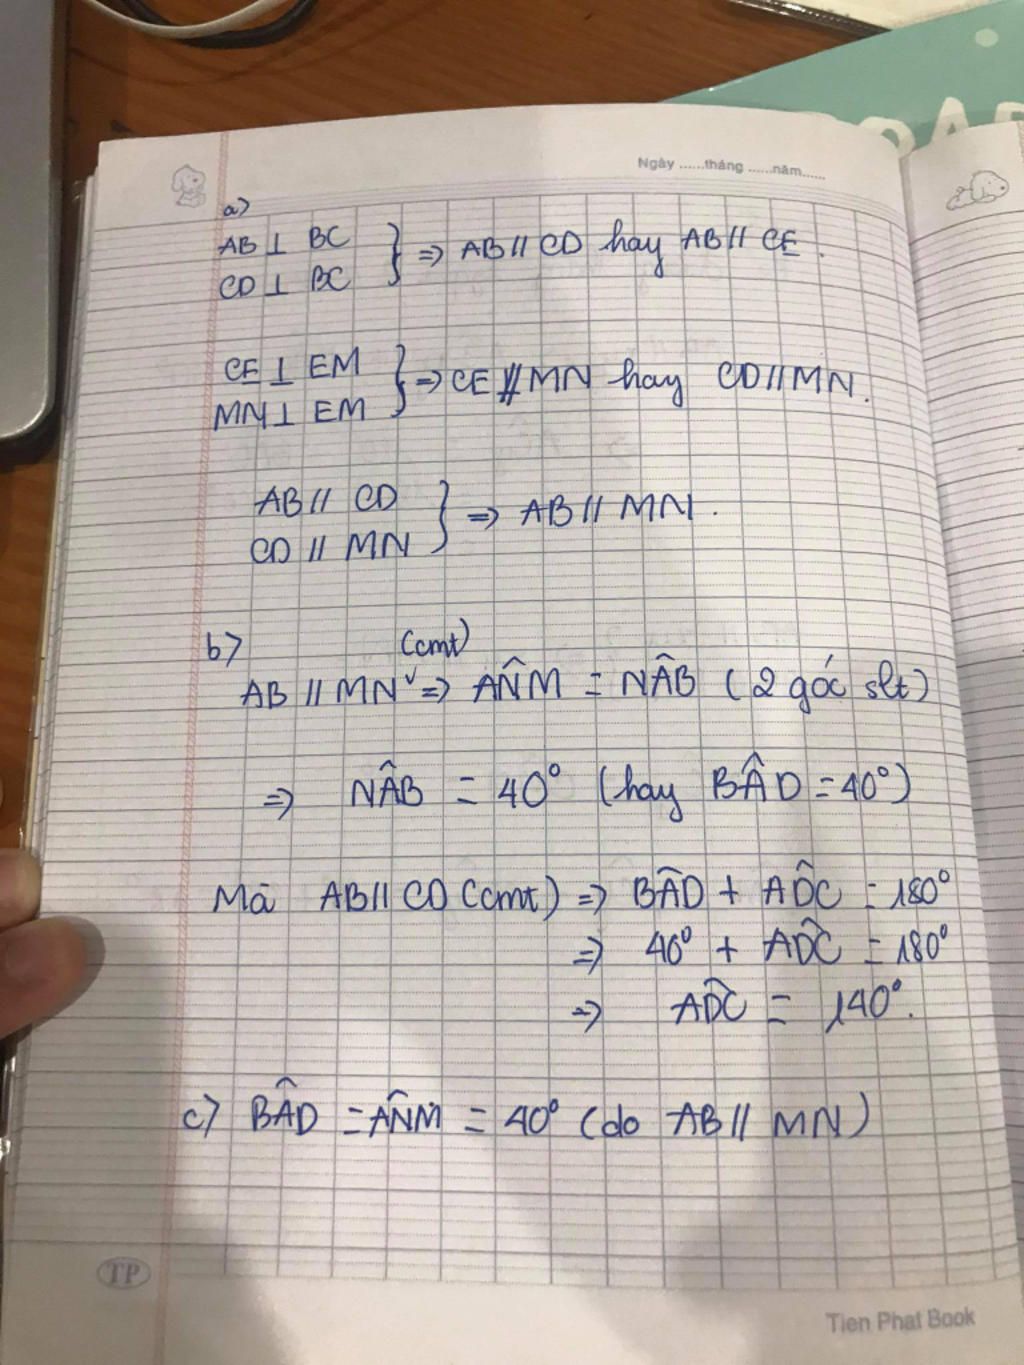 Ngày ......tháng ......năm......
a)
AB ⊥ BC
CD ⊥ BC } => AB // CD hay AB // CE.
CE ⊥ EM
MN ⊥ EM } => CE // MN hay CD // MN.
AB // CD
CD // MN } => AB // MN.
b) (cmt)
AB // MN => AN̂M = NÂB (2 góc slt)
=> NÂB = 40° (hay BÂD = 40°)
Mà AB // CD (cmt) => BÂD + AD̂C = 180°
=> 40° + AD̂C = 180°
=> AD̂C = 140°.
c) BÂD = AN̂M = 40° (do AB // MN)
TP
Tien Phat Book